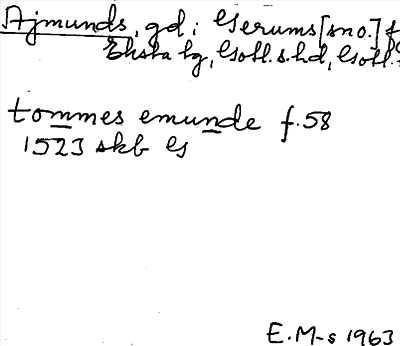 Ajmunds, gd i Gerums [sno.] f
Eksta tg, Gotl. s. hd, Gotl.
tommes emunde f. 58
1523 skb G
E. M-s 1963